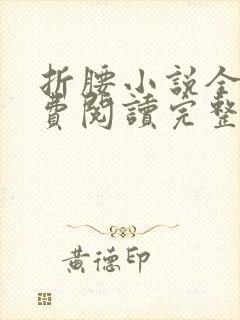 折腰小說全
費閱讀完整
黃德印